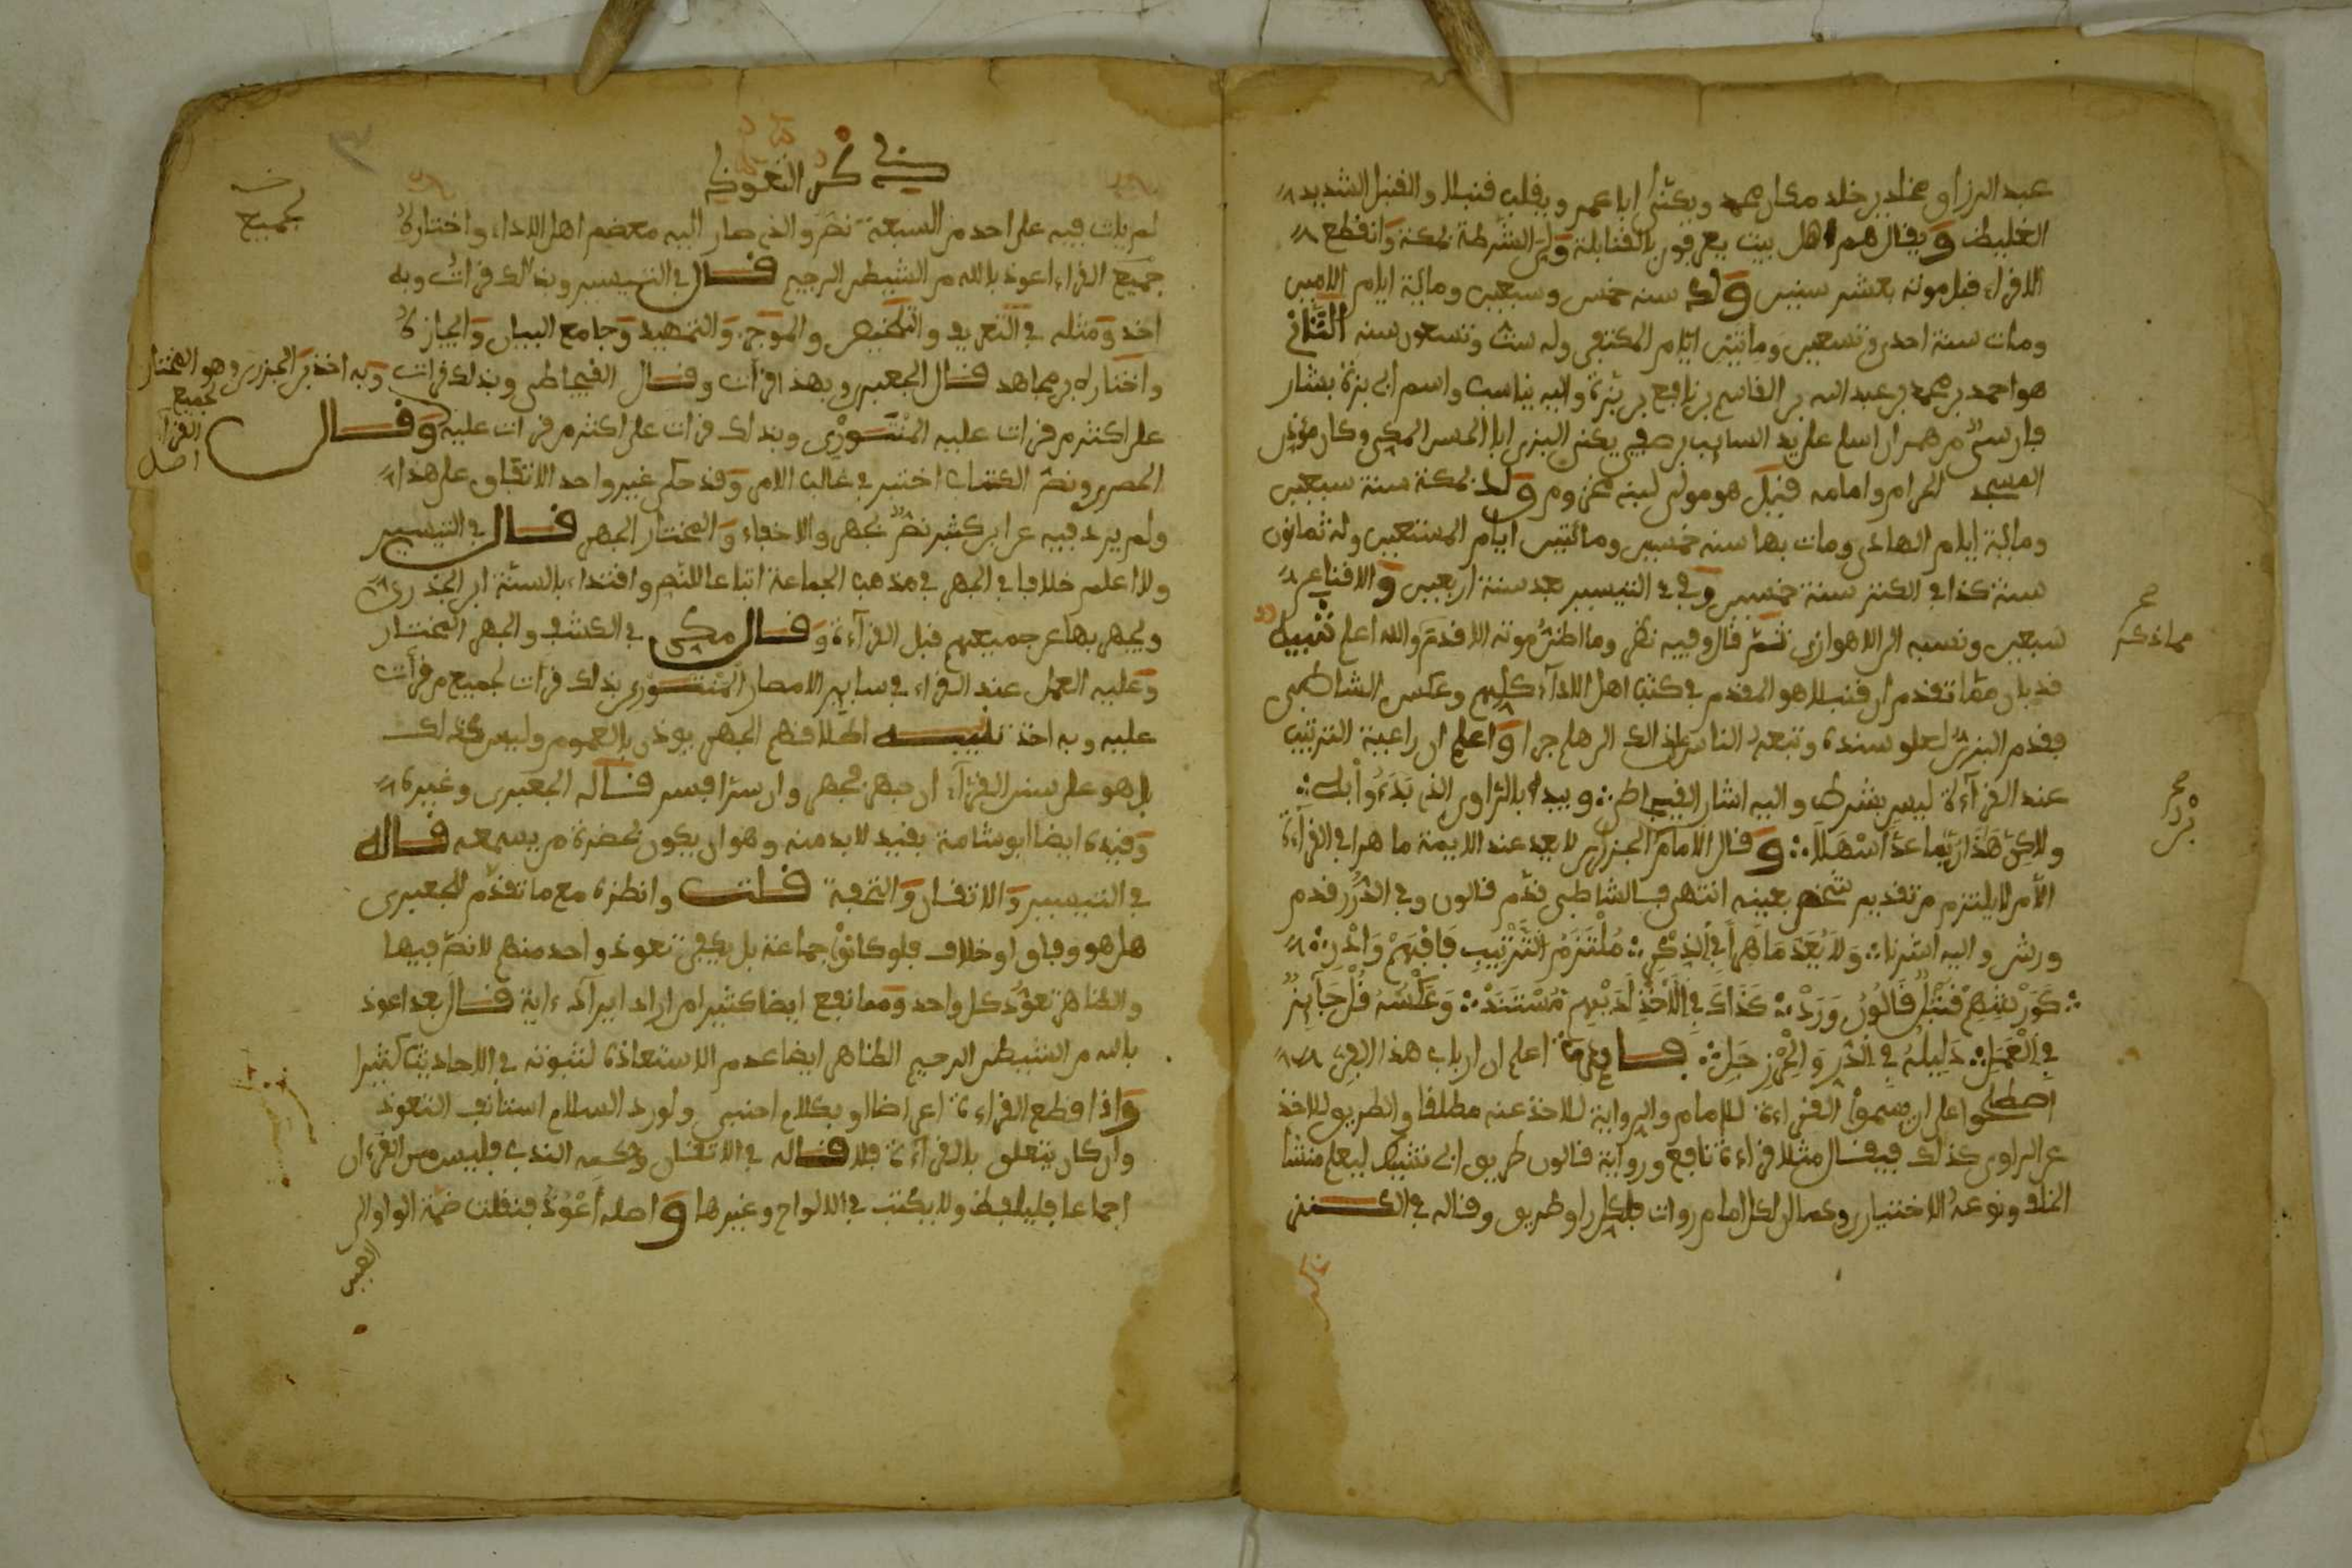 عبد الرزاو مخلد بن خلد مكار محمد ويكنى ابا عمر ويلقب قنبلا والقنبل الشديد
الغليظ ويقال هم اهل بيت يعرفون بالقنابلة وولى الشرطة بمكة وانقطع
الاقراء قبل موته بعشر سنين ولد سنه خمس وسبعين ومائة ايام الامين
ومات سنة احدى وتسعين ومائتين ايام المكتفي وله ست وتسعون سنه الثاني
هو احمد بن محمد بن عبد الله بن القاسم بن نافع بن بزة واليه يناسب واسم ابي بزة بشار
فارسي من همدان اسلم على يد السايب بن صيفي يكنى البزي ابا الحسن المكي وكان مؤذن
المسجد الحرام وامامه قيل هو مولى لبني مخزوم ولد بمكة سنة سبعين
ومائة ايام الهادي ومات بها سنه خمسين ومائتين ايام المستعين وله ثمانون
سنة كذا في الكنز سنة خمسين وفي التيسير بعد سنة اربعين والاقناع
سبعين ونسبه الى الاهوازي ثم قال وفيه نظر وما اظن موته الا قدم والله اعلم تنبيه
قد بان مما تقدم ان قنبلا هو المقدم في كتب اهل الاداء كلهم وعكس الشاطبي
فقدم البزي لعلو سنده وتبعه الناس لذالك الى هلم جرا واعلم ان راعية الترتيب
عند القراءة ليس بشرط واليه اشار القيجاطي ويبدا بالراوي الذي بدءوا به
ولاكن هذا ربما عد اسهلا وقال الامام الجزري لا يعد عند الايمة ماهرا في القراءة
الا من لا يلتزم من تقديم شخص بعينه انتهى فالشاطبي قدم قالون وفي الدرر قدم
ورش واليه اشرنا ولا يعد ماهرا في الذكر ملتزم الترتيب فافهم وادر
كورشهم قنبل قالون ورد كذاك في الاخذ لديهم مستند وعكسه قل جايز
في العمل دليله في الدر والحرز جلي فايدة اعلم ان ارباب هذا الفن
اصطلحوا على ان يسموا القراءة للامام والرواية للاخذ عنه مطلقا والطريق للاخذ
عن الراوي كذلك فيقال مثلا قراءة نافع ورواية قالون طريق ابي نشيط ليعلم منشا
الخلاف ونوعه الاختيار وكما ان لكل امام روات فلكل راو طريق وقاله في الكنز
مما ذكر
ذكر التعوذ
لم يات فيه على احد من السبعة نص والذي صار اليه معضم اهل الاداء واختاره
جميع القراء اعوذ بالله من الشيطن الرجيم قال في التيسير وبذالك قرات وبه
اخذ ومثله في التعريف والتلخيص والموجز والتمهيد وجامع البيان وايجازه
واختاره بن مجاهد قال الجعبري وبهذا قرات وقال القيجاطي وبذلك قرات وبه اخذ بن الجزري وهو المختار
لجميع القراء اصل
على اكثر من قرات عليه المنتوري وبذلك قرات على اكثر من قرات عليه وقال
الحصري ونص الكتاب اختير في غالب الامر وقد حكى غير واحد الاتفاق على هذا
ولم يرد فيه عن ابن كثير نص بجهر والاخفاء والمختار الجهر قال في التيسير
ولا اعلم خلافا في الجهر في مذهب الجماعة اتباعا للنص واقتداء بالسنة ابن الجزري
ويجهر بها عن جميعهم قبل القراءة وقال مكي في الكشف والجهر المختار
وعليه العمل عند القراء في ساير الامصار المنتوري بذلك قرات لجميع من قرات
عليه وبه اخذ تنبيه اطلاقهم الجهر يوذن بالعموم وليس كذلك
بل هو على سنن القراء ان جهرا فجهر وان سرا فسر قاله الجعبري وغيره
وقيده ايضا ابو شامة بقيد لا بد منه وهو ان يكون بحضرة من يسمعه قاله
في التيسير والاتقان والتحفة قلت وانظره مع ما تقدم للجعبري
هل هو وفاق او خلاف فلو كانوا جماعة بل يكفي تعوذ واحد منهم لا نص فيها
والظاهر تعوذ كل واحد ومما نفع ايضا كثيرا من اراد ايراد ءاية قال بعد اعوذ
بالله من الشيطن الرجيم الظاهر ايضا عدم الاستعاذة لثبوته في الاحاديث كثيرا
واذا قطع القراءة اعراضا او بكلام اجنبي ولو رد السلام استانف التعوذ
وان كان يتعلق بالقراءة فلا قاله في الاتقان وحكمه الندب فليس من القرءان
اجماعا فليلفظ ولا يكتب في الالواح وغيرها واصله اعوذ فنقلت ضمة الواو الى
العين
لجميع